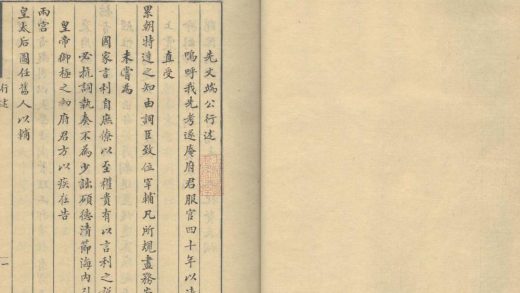 先文端公行述
嗚呼我先考遂庵府君服官四十年以
直受
累朝特達之知由詞臣致位宰輔凡所規畫務
未嘗為
國家言利自庶僚以至權貴有以言利之說
必抗詞執奏不為少詘碩德清節海內引
皇帝御極之初府君方以疾在告
兩宮
皇太后圖任舊人以輔
行述
一